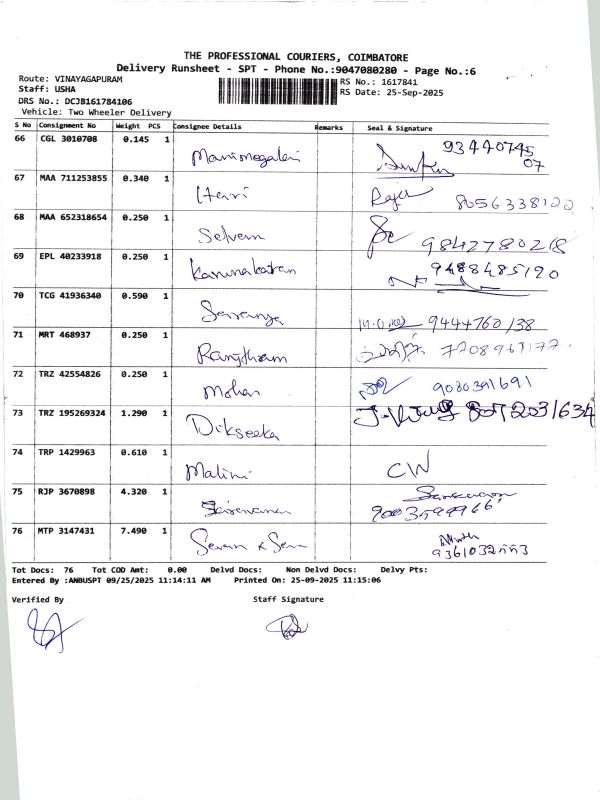 THE PROFESSIONAL COURIERS, COIMBATORE
Delivery Runsheet - SPT - Phone No.:9047080280 - Page No.:6
Route: VINAYAGAPURAM
RS No.: 1617841
Staff: USHA
RS Date: 25-Sep-2025
DRS No.: DCJB161784106
Vehicle: Two Wheeler Delivery
S No Consignment No Weight PCS Consignee Details Remarks Seal & Signature
66 CGL 3010708 0.145 1 Manimegalai 9344074507
67 MAA 711253855 0.340 1 Henri Raju 8056338120
68 MAA 652318654 0.250 1 Selvam 9842780218
69 EPL 40233918 0.250 1 Karunakaran 9488485120
70 TCG 41936340 0.590 1 Saranya 9444760138
71 MRT 468937 0.250 1 Ranjtham
72 TRZ 42554826 0.250 1 Mohan 9080391691
73 TRZ 195269324 1.290 1 Dikseeka
74 TRP 1429963 0.610 1 Malini CW
75 RJP 3670898 4.320 1
76 MTP 3147431 7.490 1 9361032553
Tot Docs: 76 Tot COD Amt: 0.00 Delvd Docs: Non Delvd Docs: Delvy Pts:
Entered By :ANBUSPT 09/25/2025 11:14:11 AM Printed On: 25-09-2025 11:15:06
Verified By Staff Signature